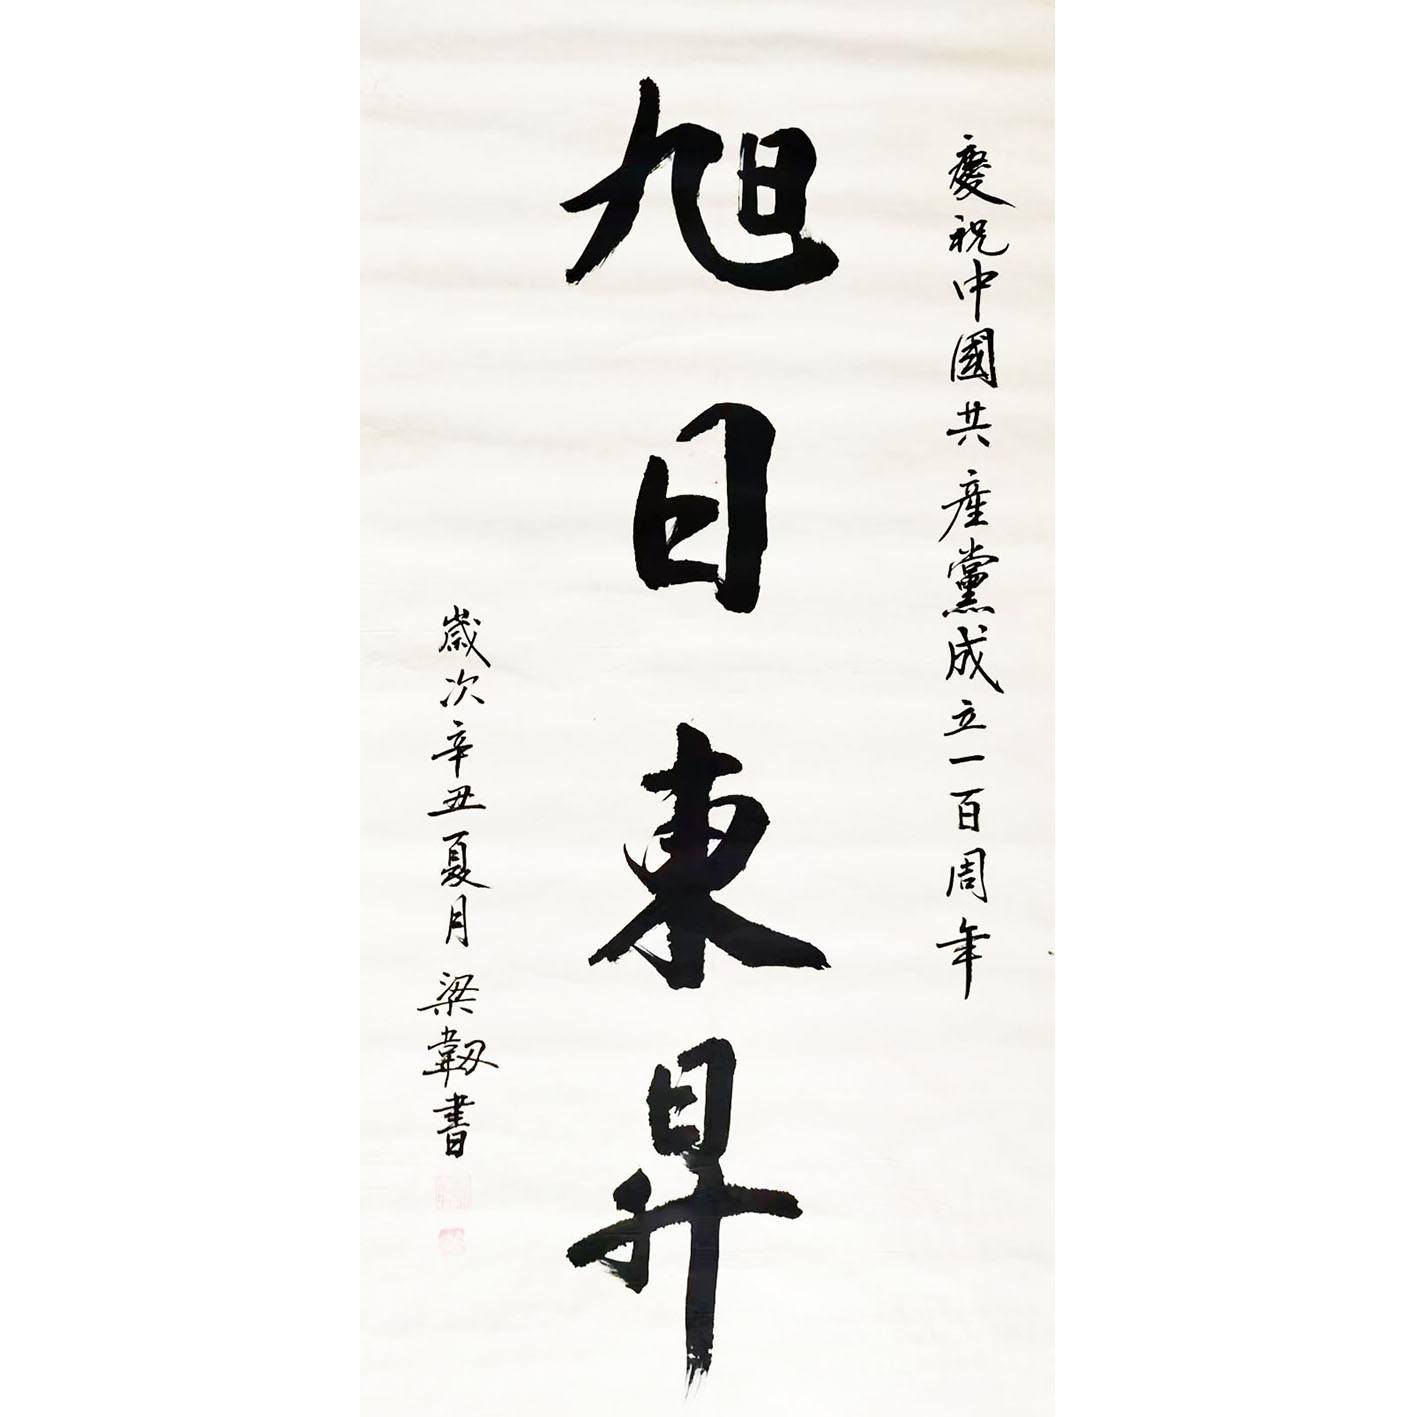 慶祝中國共產黨成立一百周年
旭日東昇
歲次辛丑夏月梁韌書